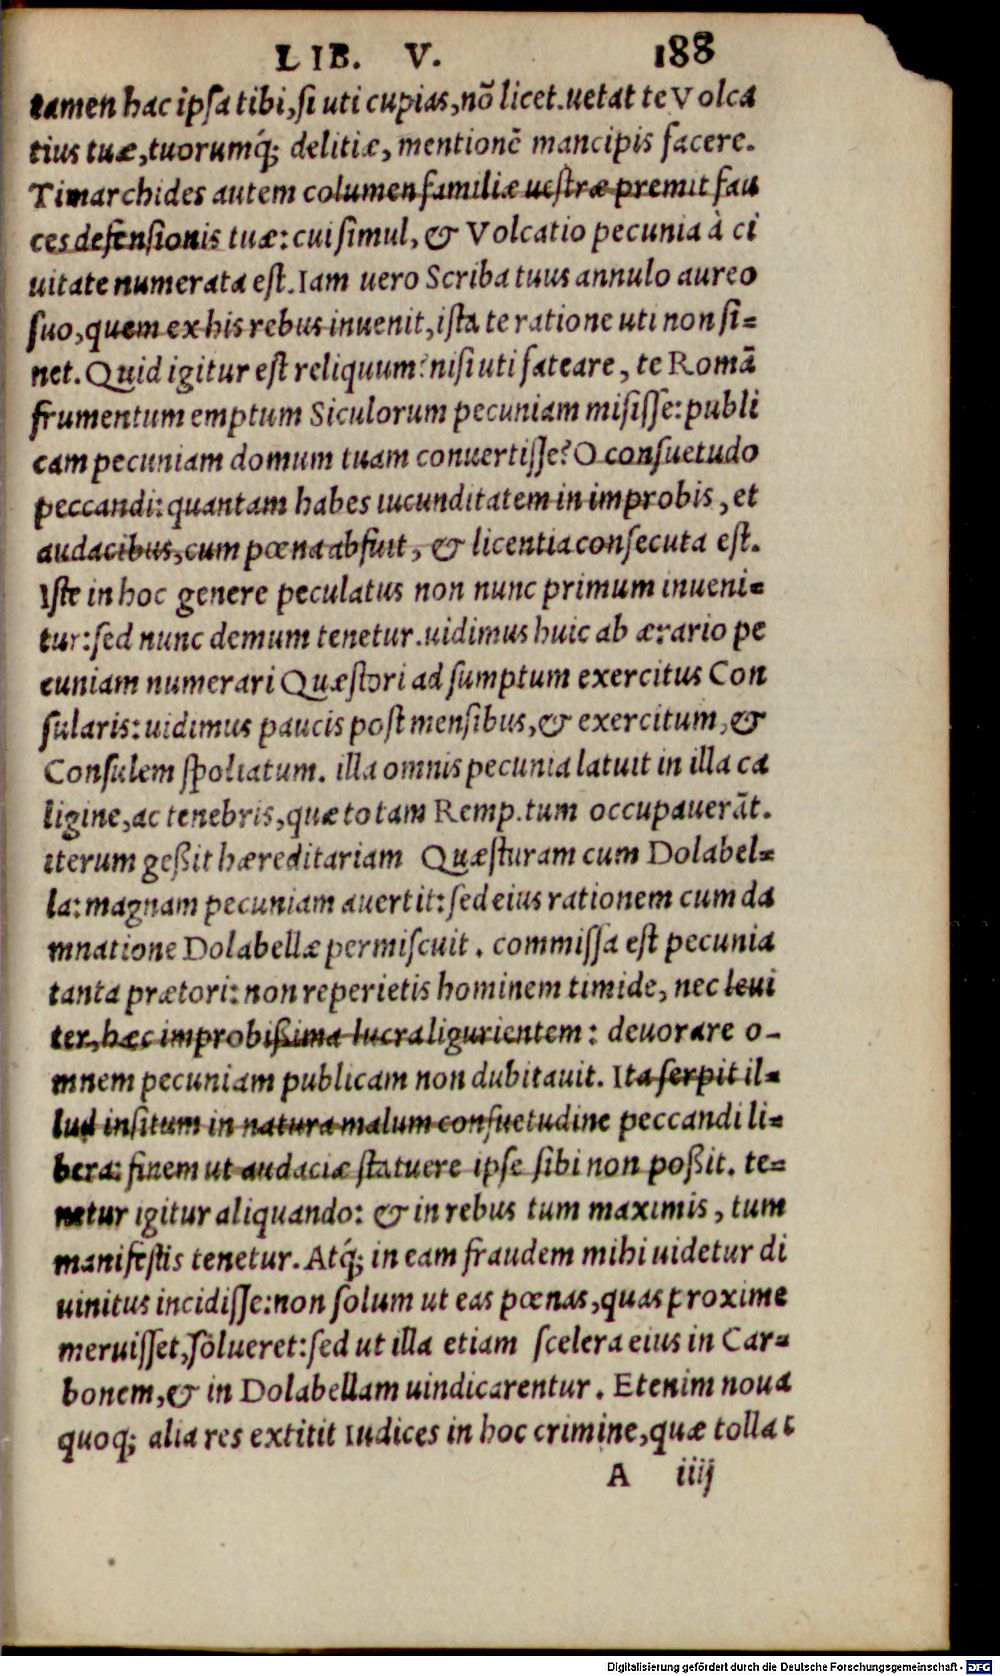 LIB. V. 188
tamen hac ipsa tibi, si uti cupias, nõ licet. uetat te Volca
tius tuæ, tuorumq́; delitiæ, mentionẽ mancipis facere.
Timarchides autem columen familiæ uestræ premit fau
ces defensionis tuæ: cui simul, & Volcatio pecunia à ci
uitate numerata est. Iam uero Scriba tuus annulo aureo
suo, quem ex his rebus inuenit, ista te ratione uti non si=
net. Quid igitur est reliquum? nisi uti fateare, te Romã
frumentum emptum Siculorum pecuniam misisse: publi
cam pecuniam domum tuam conuertisse? O consuetudo
peccandi: quantam habes iucunditatem in improbis, et
audacibus, cum pœna abfuit, & licentia consecuta est.
Iste in hoc genere peculatus non nunc primum inueni=
tur: sed nunc demum tenetur. uidimus huic ab ærario pe
cuniam numerari Quæstori ad sumptum exercitus Con
sularis: uidimus paucis post mensibus, & exercitum, &
Consulem spoliatum. illa omnis pecunia latuit in illa ca
ligine, ac tenebris, quæ totam Remp. tum occupauerãt.
iterum geßit hæreditariam Quæsturam cum Dolabel=
la: magnam pecuniam auertit: sed eius rationem cum da
mnatione Dolabellæ permiscuit. commissa est pecunia
tanta prætori: non reperietis hominem timide, nec leui
ter, hæc improbißima lucra ligurientem: deuorare o-
mnem pecuniam publicam non dubitauit. Ita serpit il=
lud insitum in natura malum consuetudine peccandi li=
bera: finem ut audaciæ statuere ipse sibi non poßit. te=
netur igitur aliquando: & in rebus tum maximis, tum
manifestis tenetur. Atq́; in eam fraudem mihi uidetur di
uinitus incidisse: non solum ut eas pœnas, quas proxime
meruisset, solueret: sed ut illa etiam scelera eius in Car=
bonem, & in Dolabellam uindicarentur. Etenim noua
quoq; alia res extitit Iudices in hoc crimine, quæ tollat
A iiij
Digitalisierung gefördert durch die Deutsche Forschungsgemeinschaft - DFG